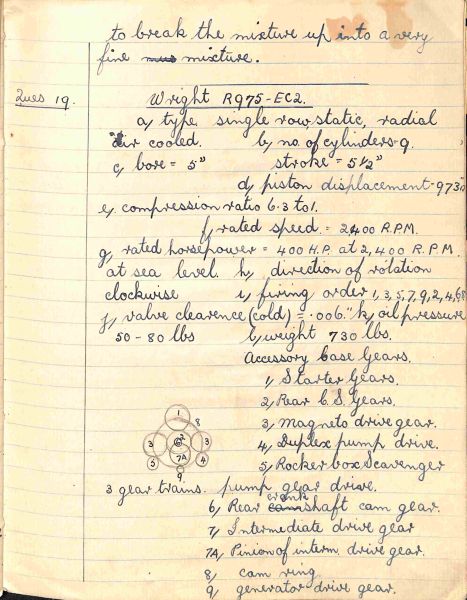 to break the mixture up into a very
fine mixture.
Ques 19. Wright R975-EC2.
a, type single row, static, radial
air cooled. b, no. of cylinders-9.
c, bore = 5" stroke = 5 1/2"
d, piston displacement-973"
e, compression ratio 6.3 to 1.
f, rated speed. = 2400 R.P.M.
g, rated horsepower = 400 H.P. at 2,400 R.P.M.
at sea level. h, direction of rotation
clockwise i, firing order 1,3,5,7,9,2,4,6,8
j, valve clearence (cold) = .006." k, oil pressure
50-80 lbs l, weight 730 lbs.
Accessory base Gears.
1, Starter Gears.
2, Rear C.S. Gears.
3, Magneto drive gear.
4, Duplex pump drive.
5, Rocker box Scavenger
3 gear trains. pump gear drive.
6, Rear crank shaft cam gear.
7, Intermediate drive gear
7A, Pinion of interm. drive gear.
8, cam ring.
9, generator drive gear.
1
8
3
3
7A
5
4
9